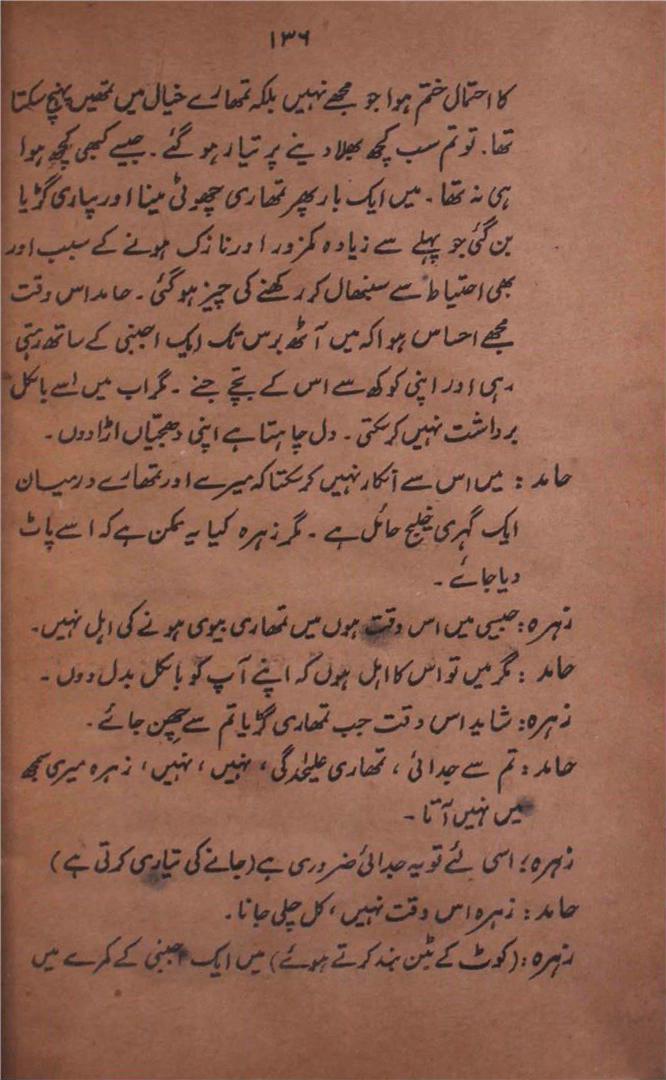 ۱۳۶
کا احتمال ختم ہوا جو مجھے نہیں بلکہ تمھارے خیال میں تمھیں پہنچ سکتا
تھا۔ تو تم سب کچھ بھلا دینے پر تیار ہو گئے۔ جیسے کبھی کچھ ہوا
ہی نہ تھا۔ میں ایک بار پھر تمھاری چھوٹی مینا اور پیاری گڑیا
بن گئی جو پہلے سے زیادہ کمزور اور نازک ہونے کے سبب اور
بھی احتیاط سے سنبھال کر رکھنے کی چیز ہو گئی۔ حامد اس وقت
مجھے احساس ہوا کہ میں آٹھ برس تک ایک اجنبی کے ساتھ رہتی
رہی اور اپنی کوکھ سے اس کے بچے جنے۔ مگر اب میں اسے بالکل
برداشت نہیں کر سکتی۔ دل چاہتا ہے اپنی دھجیاں اڑا دوں۔
حامد : میں اس سے انکار نہیں کر سکتا کہ میرے اور تمھارے درمیان
ایک گہری خلیج حائل ہے۔ مگر زہرہ کیا یہ ممکن ہے کہ اسے پاٹ
دیا جائے۔
زہرہ : جیسی میں اس وقت ہوں میں تمھاری بیوی ہونے کی اہل نہیں۔
حامد : مگر میں تو اس کا اہل ہوں کہ اپنے آپ کو بالکل بدل دوں۔
زہرہ : شاید اس وقت جب تمھاری گڑیا تم سے چھن جائے۔
حامد : تم سے جدائی، تمھاری علیٰحدگی، نہیں، نہیں، زہرہ میری سمجھ
میں نہیں آتا۔
زہرہ : اسی لئے تو یہ جدائی ضروری ہے (جانے کی تیاری کرتی ہے)
حامد : زہرہ اس وقت نہیں، کل چلی جانا۔
زہرہ : (کوٹ کے بٹن بند کرتے ہوئے) میں ایک اجنبی کے کمرے میں